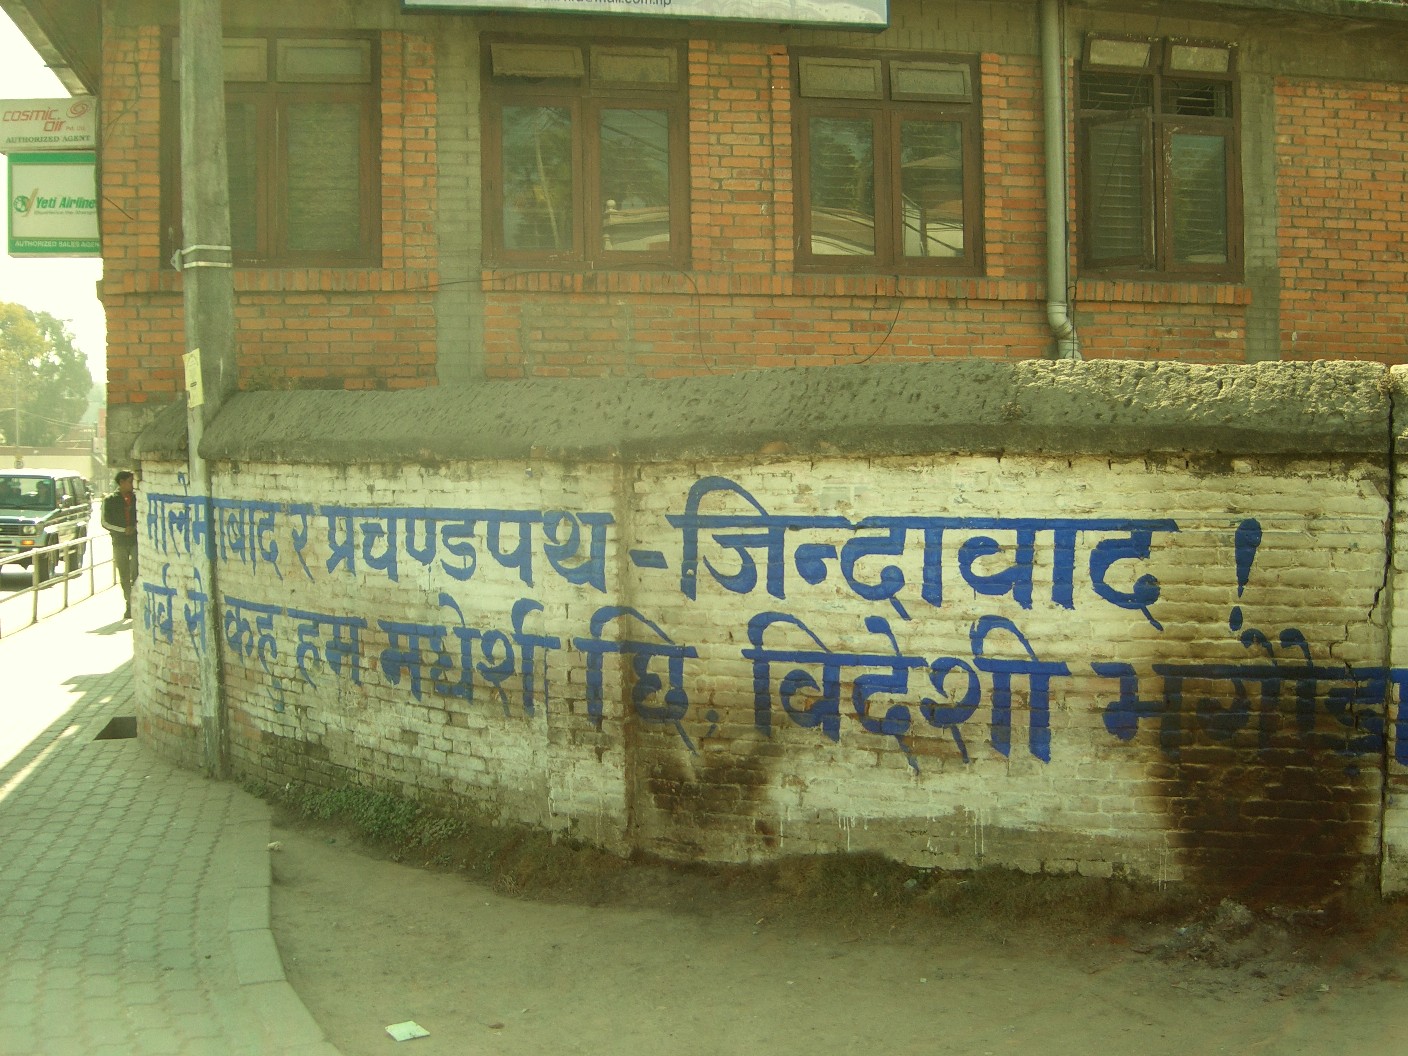 COSMIC
air PVT. LTD.
AUTHORIZED AGENT
Yeti Airline
AUTHORIZED SALES AGEN
मालेमाबाद र प्रचण्डपथ - जिन्दावाद !
गर्व से कह हम मधेशी छि, विदेशी भगौडा